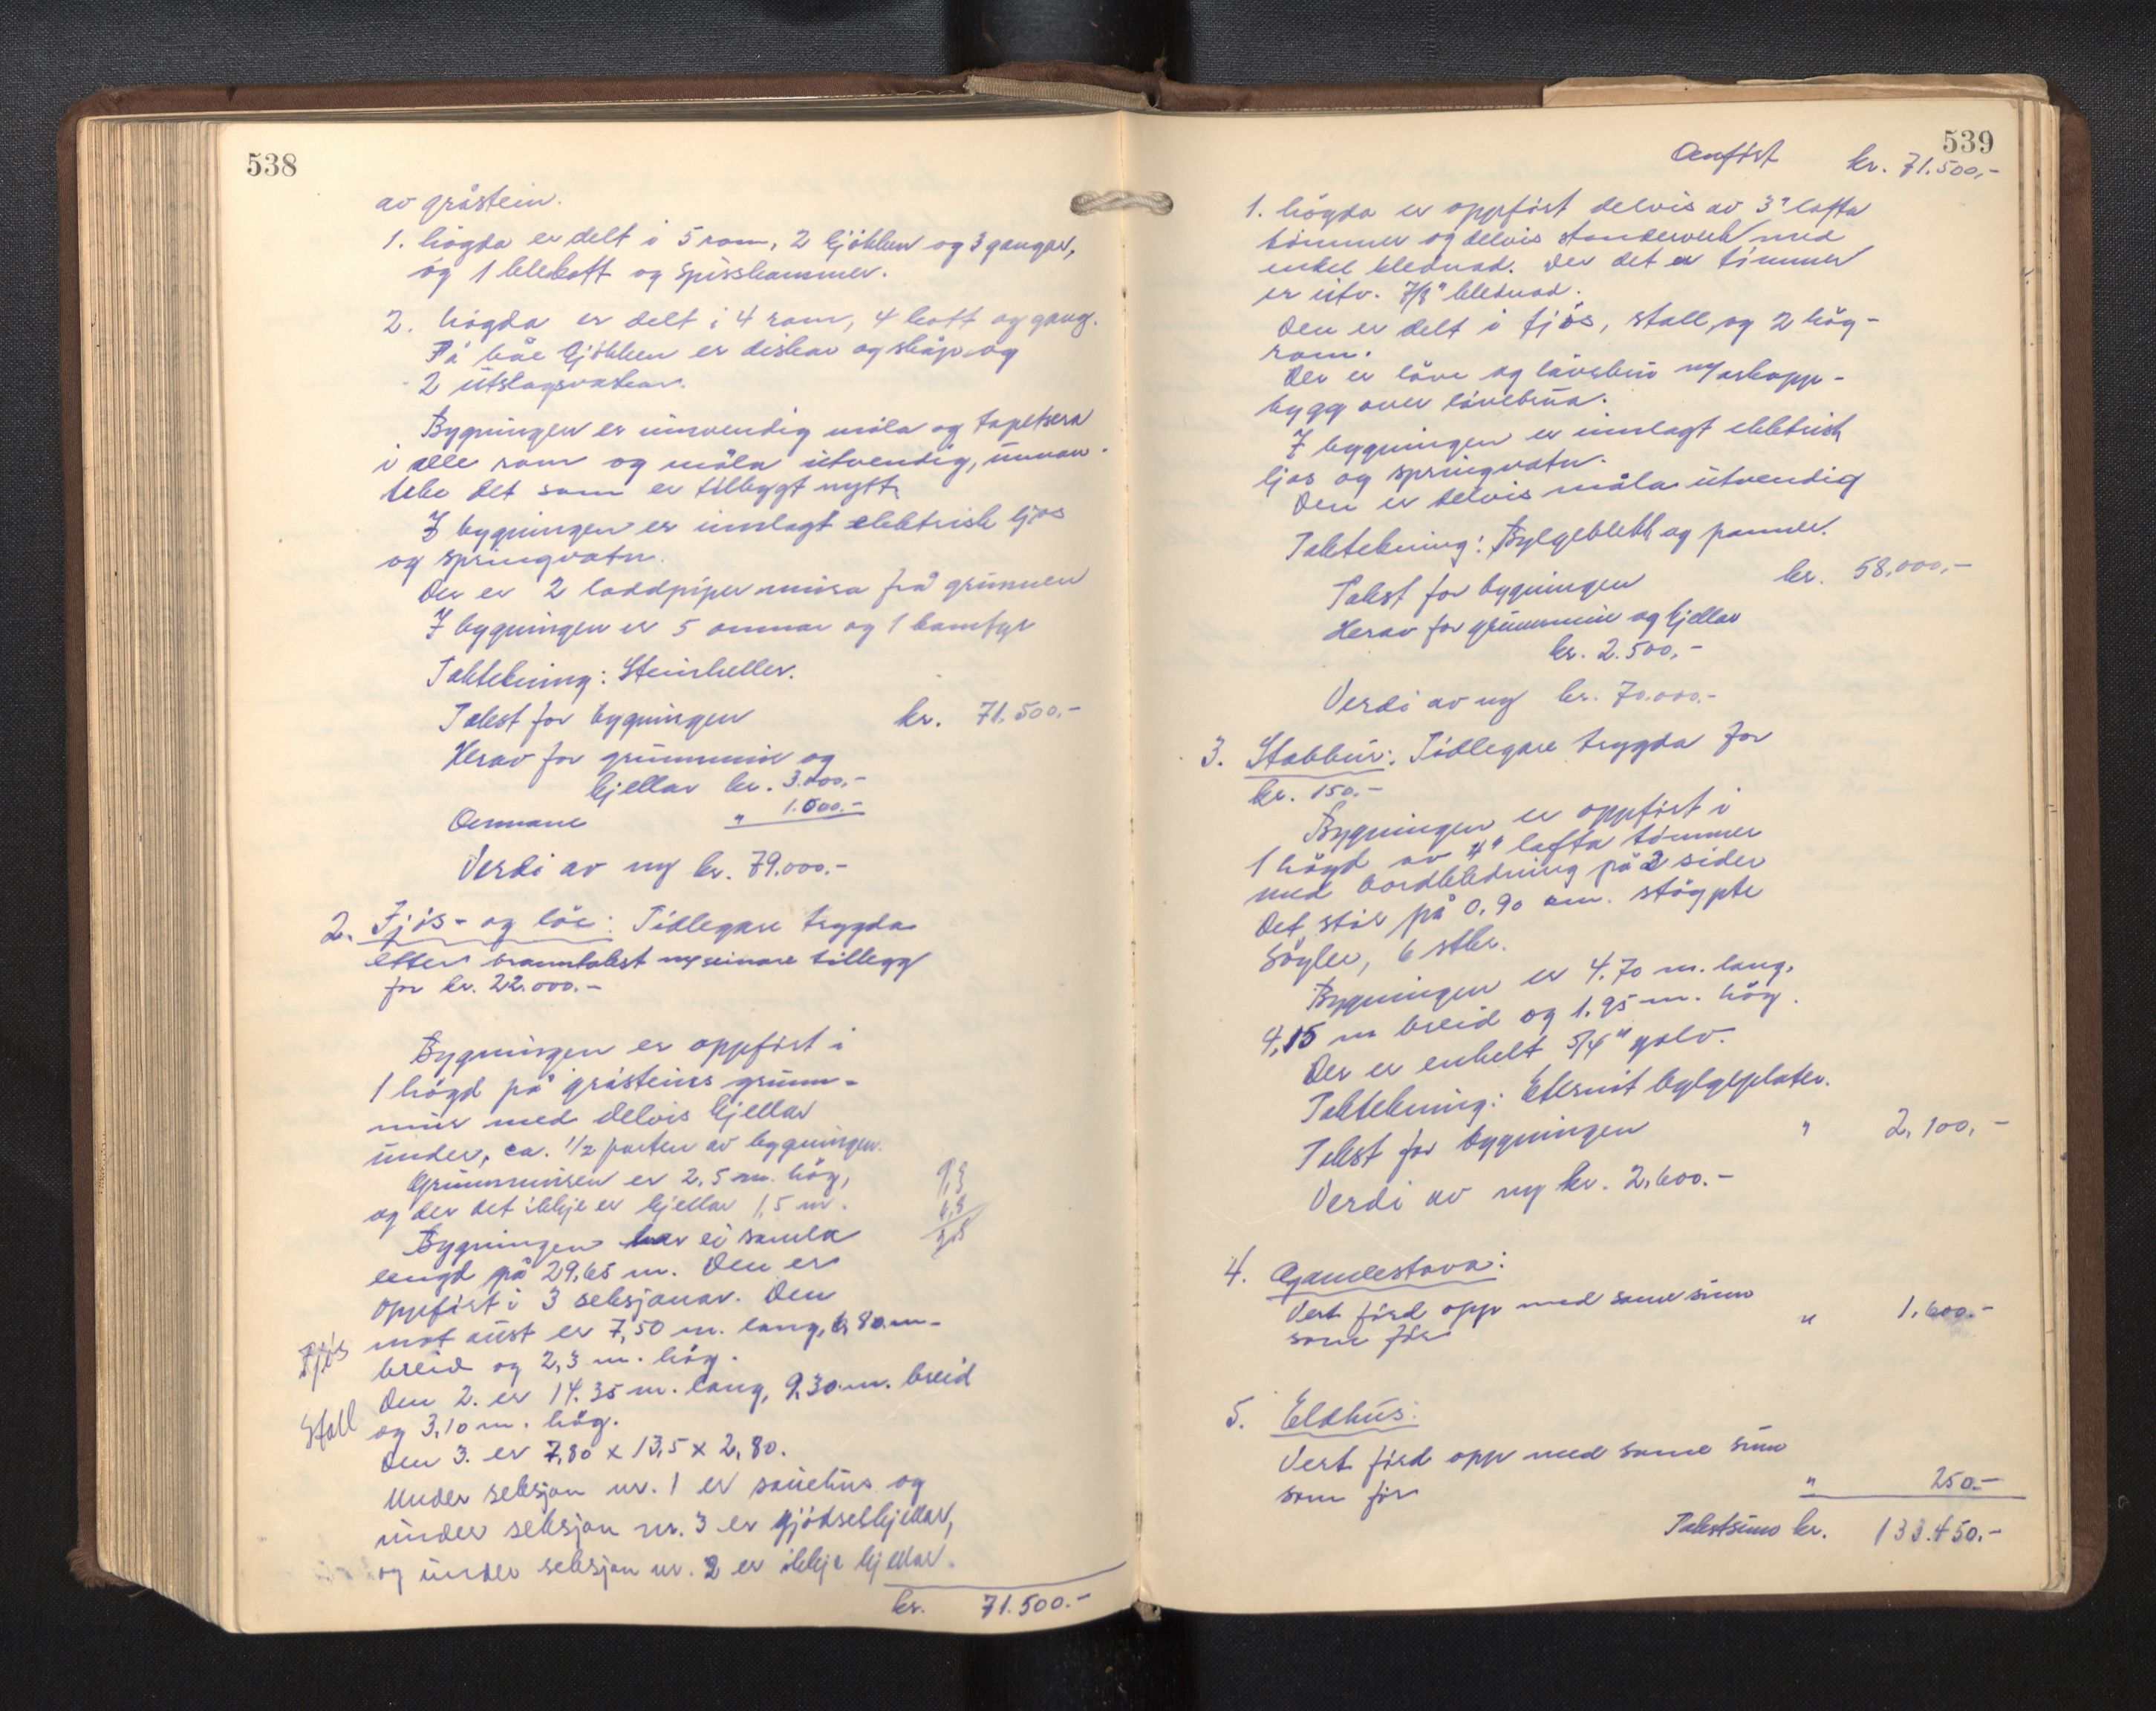 538
av gråstein.
1. högda er delt i 5 rom, 2 kjökken og 3 gangar,
og 1 klekott og spisskammer.
2. högda er delt i 4 rom, 4 kott og gang.
På båe kjökken er diskar og skåp og
2 utslagsvaskar.
Bygningen er innvendig måla og tapetsera
i alle rom og måla utvendig, unnan-
teke det som er tilbygt nytt.
I bygningen er innlagt elektrisk ljos
og springvatn.
Der er 2 loddpiper mura frå grunnen
I bygningen er 5 omnar og 1 kamfyr
Taktekning: Steinheller.
Takst for bygningen kr. 71.500,-
Herav for grunnmur og
kjellar kr. 3.000,-
Omnane " 1.000.-
Verdi av ny kr. 79.000.-
2. Fjös- og löe: Tidlegare trygda
etter branntakst m/seinare tillegg
for kr. 22.000.-
Bygningen er oppfört i
1 högd på gråsteins grunn-
mur med delvis kjellar
under, ca. 1/2 parten av bygningen.
Grunnmuren er 2,5 m. hög,
og der det ikkje er kjellar 1,5 m.
Bygningen har ei samla
lengd på 29,65 m. Den er
oppfört i 3 seksjonar. Den
Fjös mot aust er 7,50 m. lang, 6,80 m.
breid og 2,3 m. hög.
Den 2. er 14.35 m. lang, 9.30 m. breid
Stall og 3,10 m. hög.
Den 3. er 7,80 x 13,5 x 2,80.
Under seksjon nr. 1 er sauehus og
under seksjon nr. 3 er gjödselkjellar,
og under seksjon nr. 2 er ikkje kjellar.
kr. 71.500.-
539
Overfört kr. 71.500,-
1. högda er oppfört delvis av 3" lafta
tömmer og delvis standerverk med
enkel klednad. Der det er tömmer
er utv. 7/8" klednad.
Den er delt i fjös, stall, og 2 höy-
rom.
Der er löve og lövebru m/
bygg over lövebrua.
I bygningen er innlagt elektrisk
ljos og springvatn.
Den er delvis måla utvendig
Taktekning: Bylgeblekk og panner.
Takst for bygningen kr. 58.000,-
Herav for grunnmur og kjellar
kr. 2.500,-
Verdi av ny kr. 70.000.-
3. Stabbur: Tidlegare trygda for
kr. 150.-
Bygningen er oppfört i
1 högd av 4" lafta tömmer
med bordkledning på 2 sider
Det står på 0,90 cm. stöypte
söyler, 6 stkr.
Bygningen er 4.70 m. lang,
4,15 m breid og 1.95 m. hög.
Der er enkelt 5/4" golv.
Taktekning: Eternit bylgeplater.
Takst for bygningen " 2.100,-
Verdi av ny kr. 2.600.-
4. Gamlestova:
Vert förd opp med same sum
som för " 1.600.-
5. Eldhus:
Vert förd opp med same sum
som för " 250.-
Takstsum kr. 133.450.-